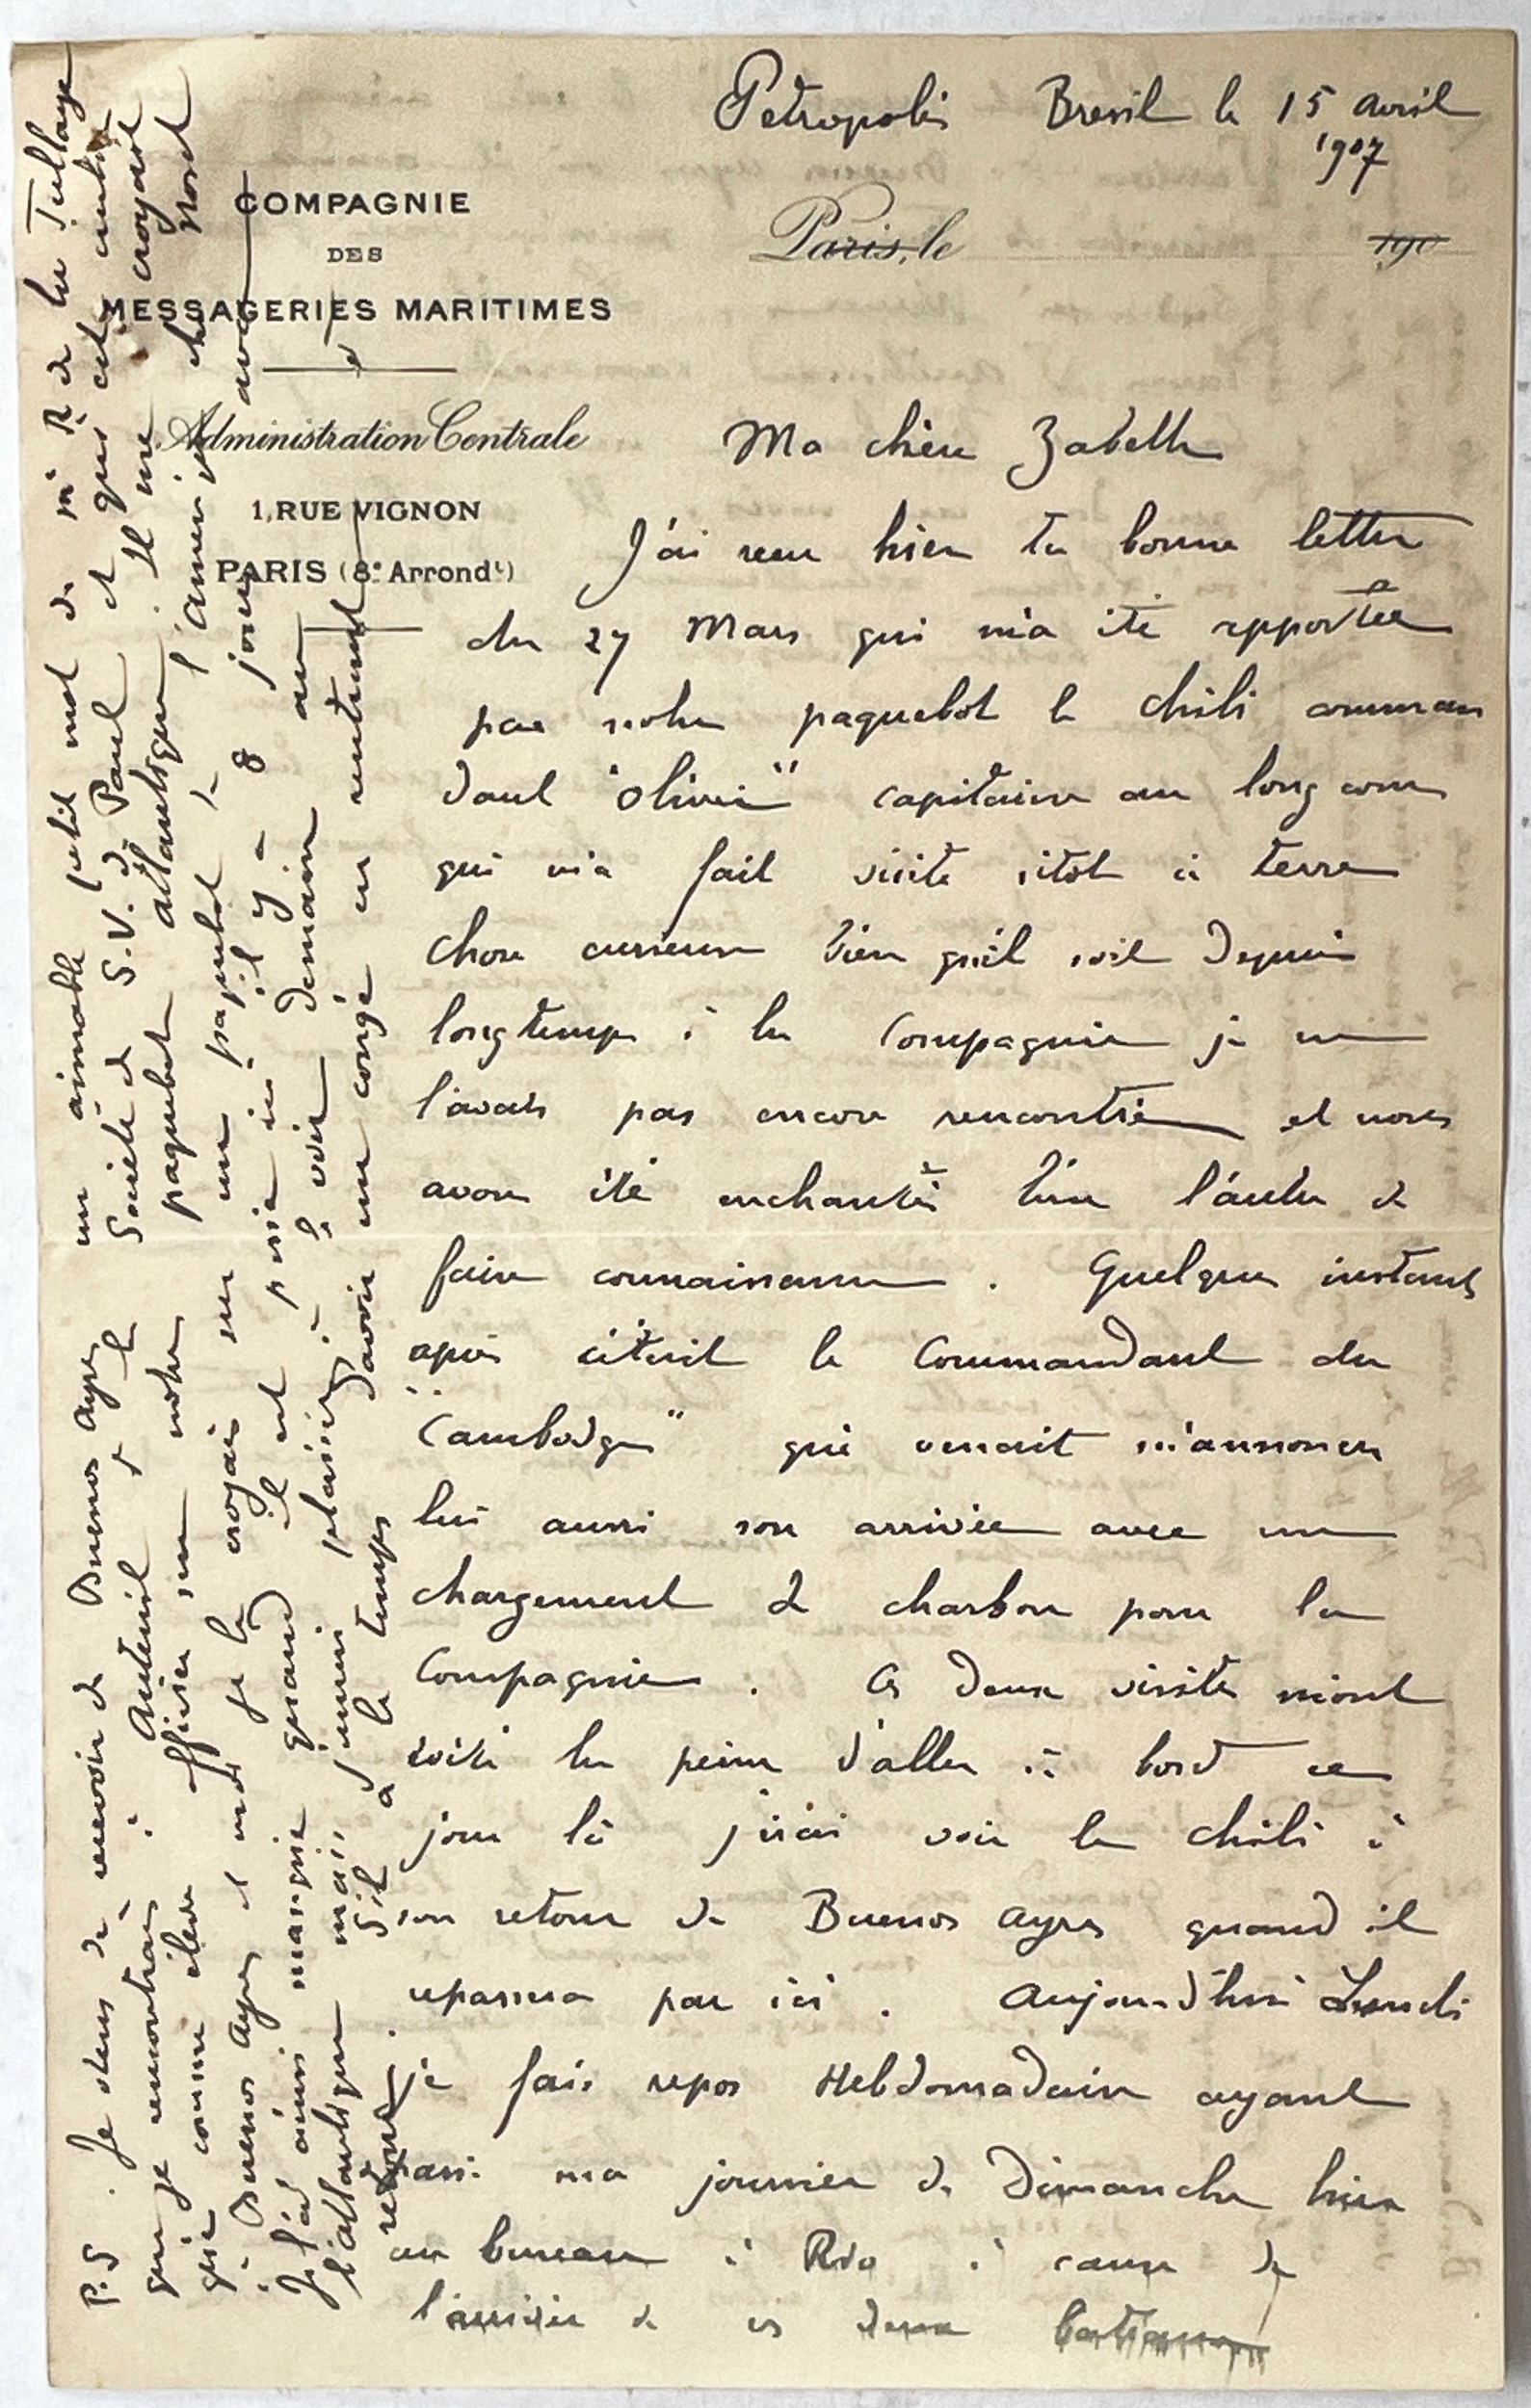 Petropolis Bresil le 15 avril
1907
COMPAGNIE
DES
MESSAGERIES MARITIMES
Paris, le 190
Administration Centrale
1, RUE VIGNON
PARIS (8e Arrondt)
Ma chère Zabelle
J'ai reçu hier ta bonne lettre
du 27 Mars qui m'a été apportée
par notre paquebot le Chili comman
dant "Olivier" capitaine au long cours
qui m'a fait visite sitôt à terre
chose curieuse bien qu'il soit depuis
longtemps à la Compagnie je ne
l'avais pas encore rencontré et nous
avons été enchantés l'un l'autre de
faire connaissance. Quelques instants
après c'était le Commandant du
"Cambodge" qui venait m'annoncer
lui aussi son arrivée avec un
chargement de charbon pour la
Compagnie. Ces deux visites m'ont
évité la peine d'aller à bord ce
jour là j'irai voir le Chili à
son retour de Buenos Ayres quand il
repassera par ici. Aujourd'hui Lundi
je fais repos Hebdomadaire ayant
passé ma journée de Dimanche hier
au bureau à Rio à cause de
l'arrivée de ces deux bateaux
P.S. Je viens de recevoir de Buenos Ayres un aimable petit mot de Mr R de la Tullaye
que je rencontrais à Auteuil à la Société de S.V. de Paul et qui est embarqué
comme élève officier sur notre paquebot atlantique. Il me croyait
à Buenos Ayres et moi je le croyais sur un paquebot de l'
Je l'ai ainsi manqué quand il est passé ici il y a 8 jours
l'atlantique mais j'aurai plaisir à le voir demain au
retour. S'il a le temps d'avoir un congé en rentrant